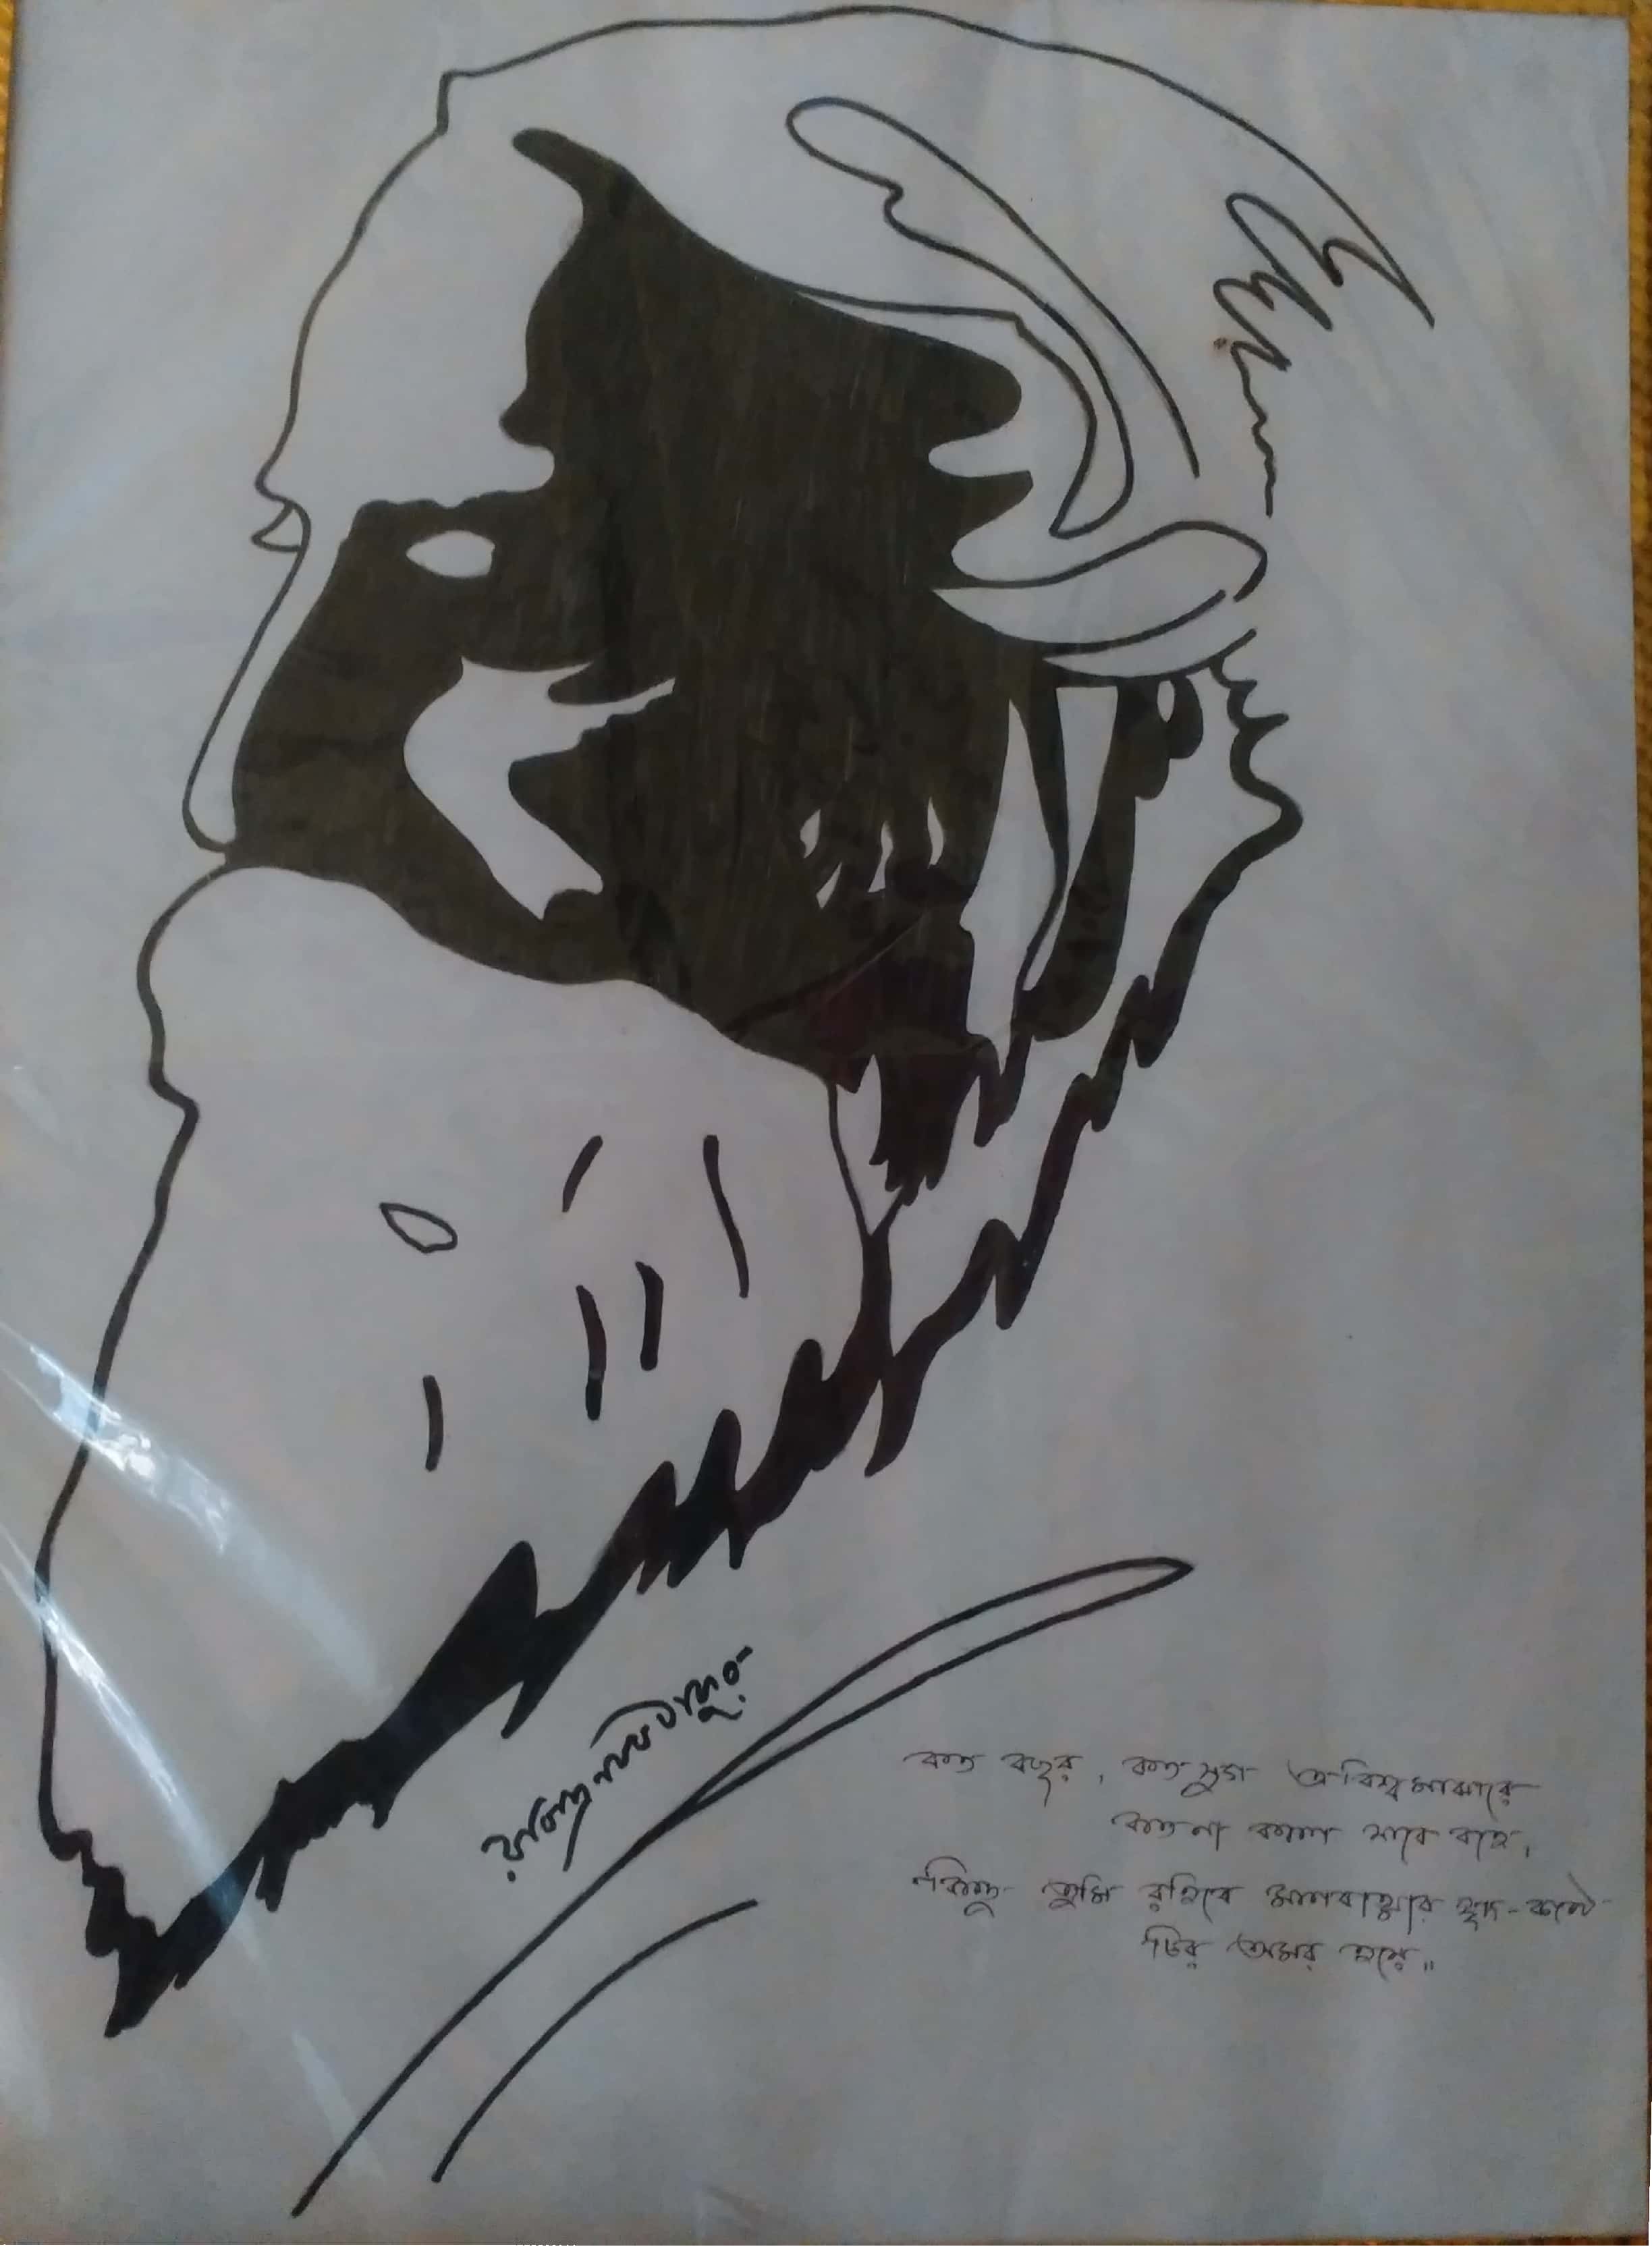 রবীন্দ্রনাথ ঠাকুর
কত বছর, কত যুগ এ বিশ্বমাঝারে
কত না কাল যাবে বহে,
কিন্তু তুমি রহিবে মানবাত্মার হৃদ-
চির অমর হয়ে॥